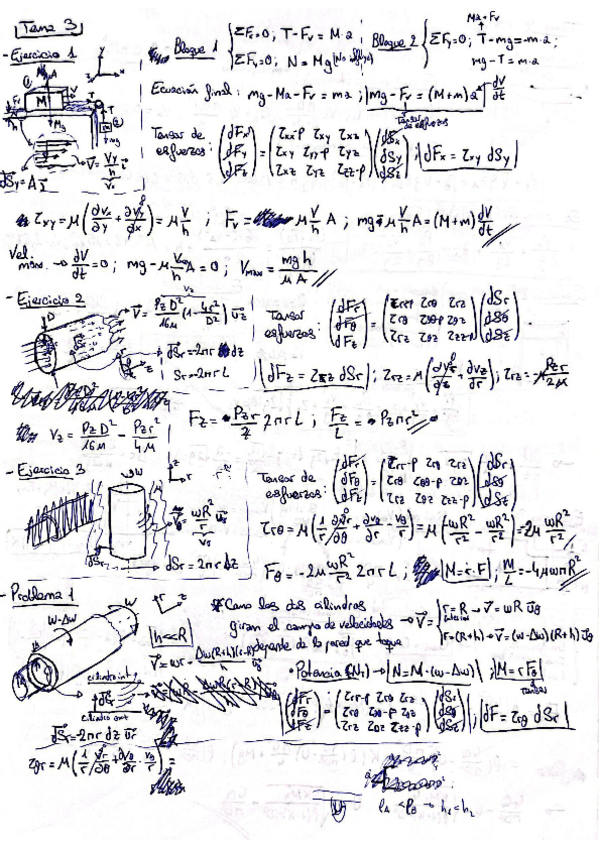 Tema 3
- Ejercicio 1
Bloque 1 { ΣFx=0; T-Fv = M·a
ΣFy=0; N = Mg
Bloque 2 { ΣFy=0; T-mg=-m·a;
Ma+Fv
mg-T=m·a
Ecuación final: mg-Ma-Fv = ma; mg-Fv = (M+m)a dV/dt
Tensor de esfuerzos
Tensor de esfuerzos: (dFx dFy dFz) = (τxx-p τxy τxz / τxy τyy-p τyz / τxz τyz τzz-p) (dSx dSy dSz); dFx = τxy dSy
V = Vy/h i
dSy = A j
τxy = μ(∂vx/∂y + ∂vy/∂x) = μ V/h ; Fv = μ V/h A ; mg-μ V/h A = (M+m) dV/dt
Vel. max. → ∂V/∂t = 0; mg - μ V/h A = 0; Vmax = mgh/μA
- Ejercicio 2
V = PzD²/16μ (1 - 4r²/D²) uz
Tensor esfuerzos: (dFr dFθ dFz) = (τrr-p τrθ τrz / τrθ τθθ-p τθz / τrz τθz τzz-p) (dSr dSθ dSz)
dSr = 2πr dz
Sr = 2πrL
dFz = τrz dSr ; τrz = μ(∂vr/∂z + ∂vz/∂r); τrz = -μ Pzr/2μ
vz = PzD²/16μ - Pzr²/4μ
Fz = - Pzr/2 2πrL ; Fz/L = - Pzπr²
- Ejercicio 3
V = ωR²/r uθ
Tensor de esfuerzos: (dFr dFθ dFz) = (τrr-p τrθ τrz / τrθ τθθ-p τθz / τrz τθz τzz-p) (dSr dSθ dSz)
τrθ = μ(1/r ∂vr/∂θ + ∂vθ/∂r - vθ/r) = μ(ωR²/r² - ωR²/r²) = 2μ ωR²/r²
dSr = 2πr dz
Fθ = -2μ ωR²/r² 2πrL ; M = r·F ; M/L = -4μωπR²
- Problema 1
ω-Δω
ω
h<<R
* Como los dos cilindros
giran el campo de velocidades → V = { r=R → V = ωR uθ
depende de la pared que toque
r=(R+h) → V = (ω-Δω)(R+h) uθ
V = ωr - Δω(R+h)(r-R)/h uθ
• Potencia (N) → N = M·(ω-Δω) ; M = rFθ
cilindro int
cilindro ext
dSr = 2πr dz ur
(dFr dFθ dFz) = (τrr-p τrθ τrz / τrθ τθθ-p τθz / τrz τθz τzz-p) (dSr dSθ dSz) ; dF = τrθ dSr
τθr = μ(1/r ∂vr/∂θ + ∂vθ/∂r - vθ/r) =
ρA < ρB → h1 < h2